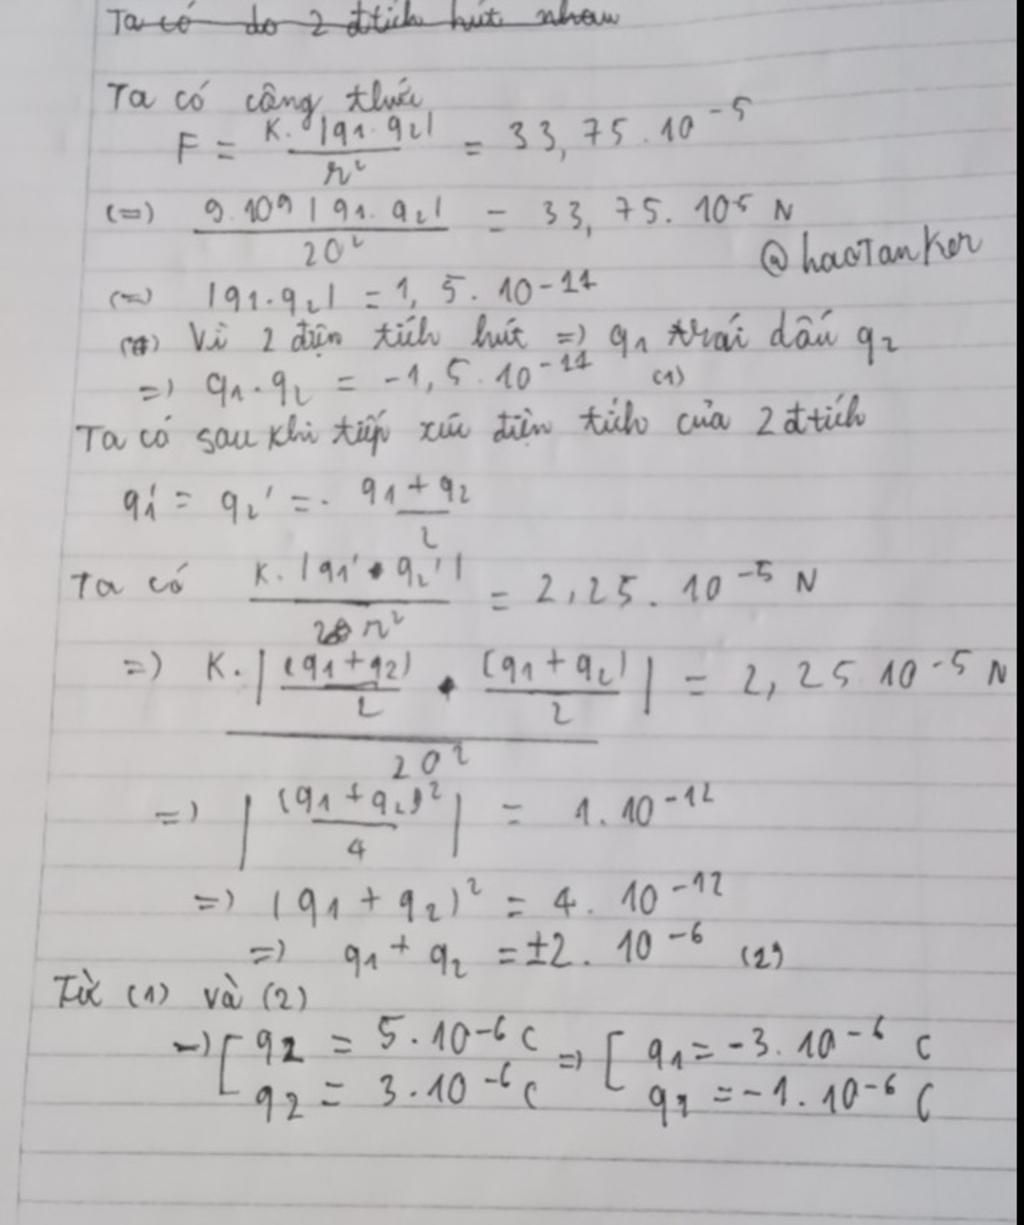 Ta có do 2 đtích hút nhau
Ta có công thức
F = K. |q1. q2| / r² = 33,75. 10⁻⁵
(=) 9.10⁹ |q1. q2| / 20² = 33,75. 10⁻⁵ N
@haoTanKer
(=) |q1.q2| = 1,5. 10⁻¹¹
(*) Vì 2 điện tích hút => q1 trái dấu q2
=> q1.q2 = -1,5.10⁻¹¹ (1)
Ta có sau khi tiếp xúc điện tích của 2 đtích
q1' = q2' = q1 + q2 / 2
Ta có K. |q1' . q2'| / r² = 2,25. 10⁻⁵ N
=> K. |(q1 + q2) / 2 . (q1 + q2) / 2| / 20² = 2,25 10⁻⁵ N
=> |(q1 + q2)² / 4| = 1.10⁻¹²
=> (q1 + q2)² = 4. 10⁻¹²
=> q1 + q2 = ±2. 10⁻⁶ (2)
Từ (1) và (2)
→ [ q2 = 5.10⁻⁶ C => [ q1 = -3.10⁻⁶ C
q2 = 3.10⁻⁶ C q1 = -1.10⁻⁶ C